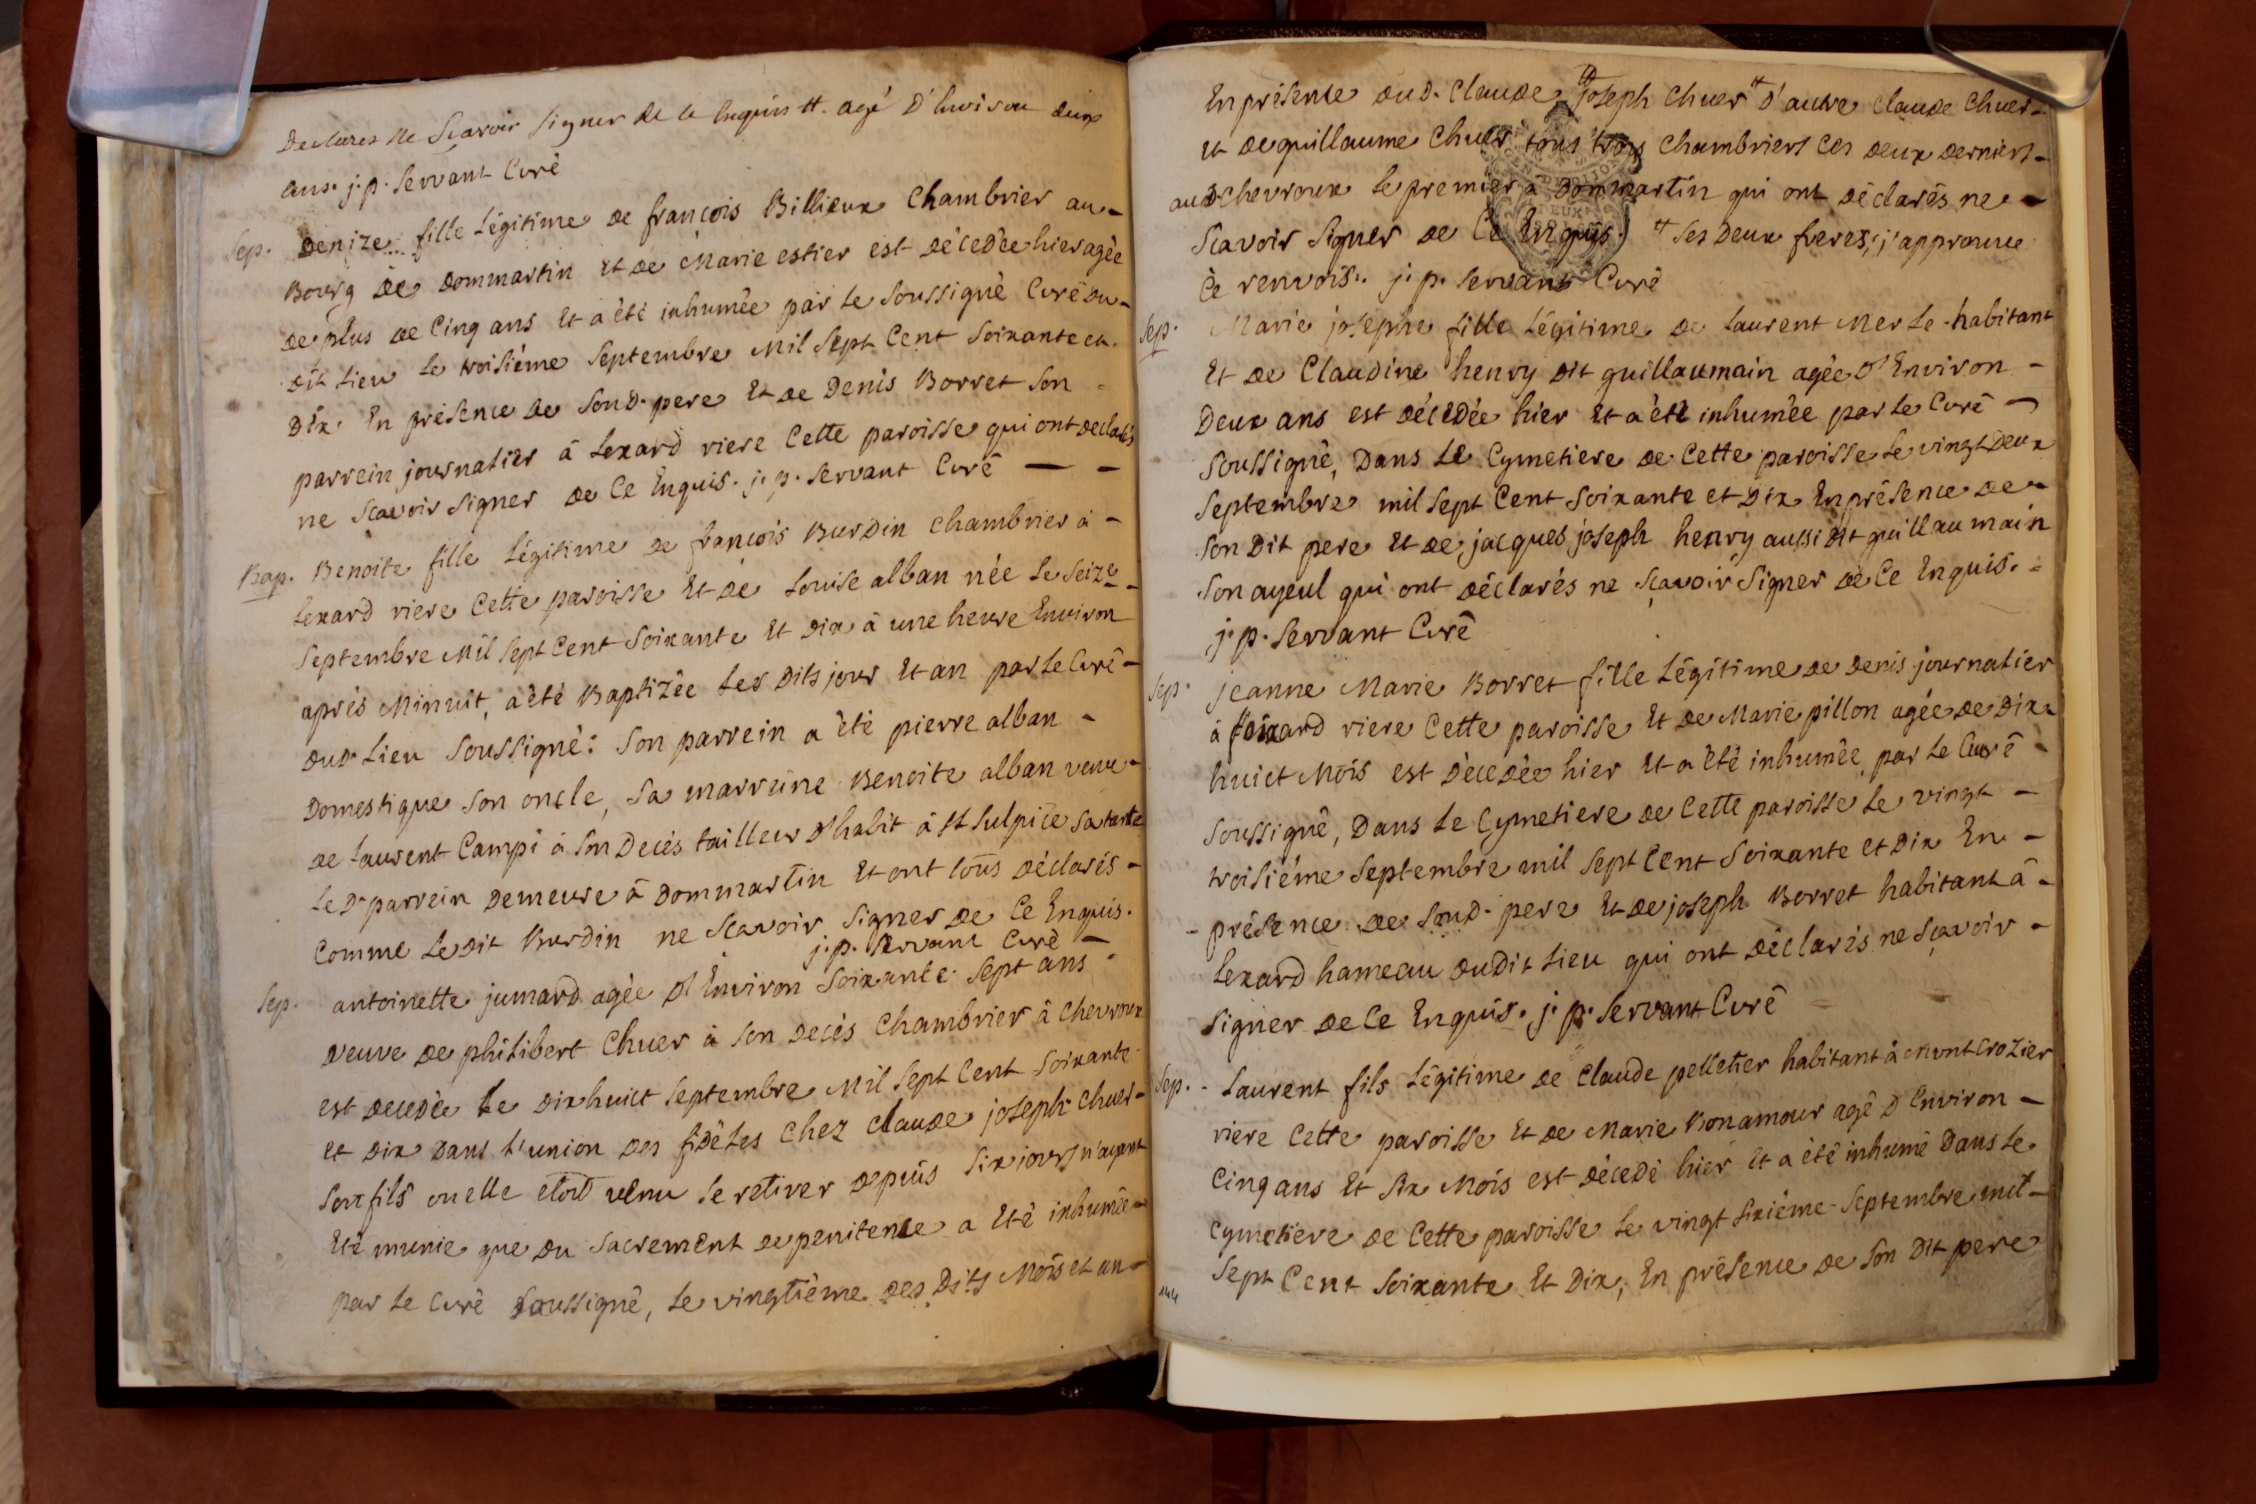 Declarez ne Scavoir signer de ce Enquis tt. agé d'Environ deux
ans. j. p. Servant Curé
Sep. Denize fille Légitime de françois Billieux Chambrier au-
Bourg de Dommartin Et de Marie estier est décedée hier agée
de plus de Cinq ans Et a été inhumée par le Soussigné Curé du-
dit Lieu le troisiéme Septembre Mil Sept Cent Soixante et.
Dix. En présence de Son d. pere Et de Denis Borret son -
parrein journalier à Lexard riere Cette paroisse qui ont declarés
ne Scavoir Signer de Ce Enquis. j. p. Servant Curé — —
Bap. Benoite fille Légitime de françois Burdin Chambrier à -
Lexard riere Cette paroisse Et de Louise alban née le Seize -
Septembre Mil Sept Cent Soixante Et Dix à une heure Environ
aprés Minuit, a été Baptizée les Dits jour Et an par le Curé -
dud. Lieu Soussigné: Son parrein a été pierre alban -
Domestique Son oncle, Sa marreine Benoite alban veuve -
de Laurent Campi à Son Decés tailleur d'habit à St Sulpice Sa tante
Le Dt. parrein Demeure à Dommartin Et ont tous Déclarés -
Comme Le Dit Burdin ne Scavoir Signer de Ce Enquis.
j. p. Servant Curé —
Sep. antoinette jumard agée d'Environ Soixante Sept ans -
veuve de philibert Chuer à Son Decés Chambrier à Chevroux
est decedée le Dixhuict Septembre Mil Sept Cent Soixante
Et Dix Dans l'union des fidèles Chez Claude joseph Chuer -
Son fils ou elle etoit venu Se retirer Depuis Six jours n'ayant
Eté munie que du Sacrement de penitence a Eté inhumée -
par le Curé Soussigné, le vingtiéme des Dits Mois et an -
En présence dud. Claude tt joseph Chuer tt d'autre Claude Chuer -
Et de guillaume Chuer tous trois Chambriers Ces Deux derniers -
aud Chevroux le premier à Dommartin qui ont déclarés ne -
Scavoir Signer de Ce Enquis. tt Ses Deux freres; j'approuve
Ce renvois. j. p. Servant Curé
Sep. Marie josephe fille Légitime de Laurent Merle habitant
Et de Claudine henry Dit guillaumain agée d'Environ -
Deux ans est décédée hier Et a été inhumée par le Curé -
Soussigné, Dans le Cymetiere de Cette paroisse le vingt Deux
Septembre mil Sept Cent Soixante et Dix En présence de -
Son Dit pere Et de jacques joseph henry aussi dit guillaumain
Son ayeul qui ont déclarés ne Scavoir Signer de Ce Enquis. -
j. p. Servant Curé
Sep. jeanne Marie Borret fille Légitime de Denis journalier
à riere Cette paroisse Et de Marie pillon agée de Dix
huict Mois est décedée hier Et a été inhumée par le Curé -
Soussigné, Dans le Cymetiere de Cette paroisse le vingt -
troisiéme Septembre mil Sept Cent Soixante et Dix En -
- présence de Son d. pere Et de joseph Borret habitant à -
Lexard hameau dudit Lieu qui ont déclarés ne Scavoir -
Signer de Ce Enquis. j. p. Servant Curé
Sep. - Laurent fils Légitime de Claude pelletier habitant à Montcrozier
riere Cette paroisse Et de Marie Bonamour agé d'Environ -
Cinq ans Et Six Mois est décédé hier Et a été inhumé Dans le
Cymetiere de Cette paroisse le vingt Sixiéme Septembre mil -
Sept Cent Soixante Et Dix, En présence de Son Dit pere
144